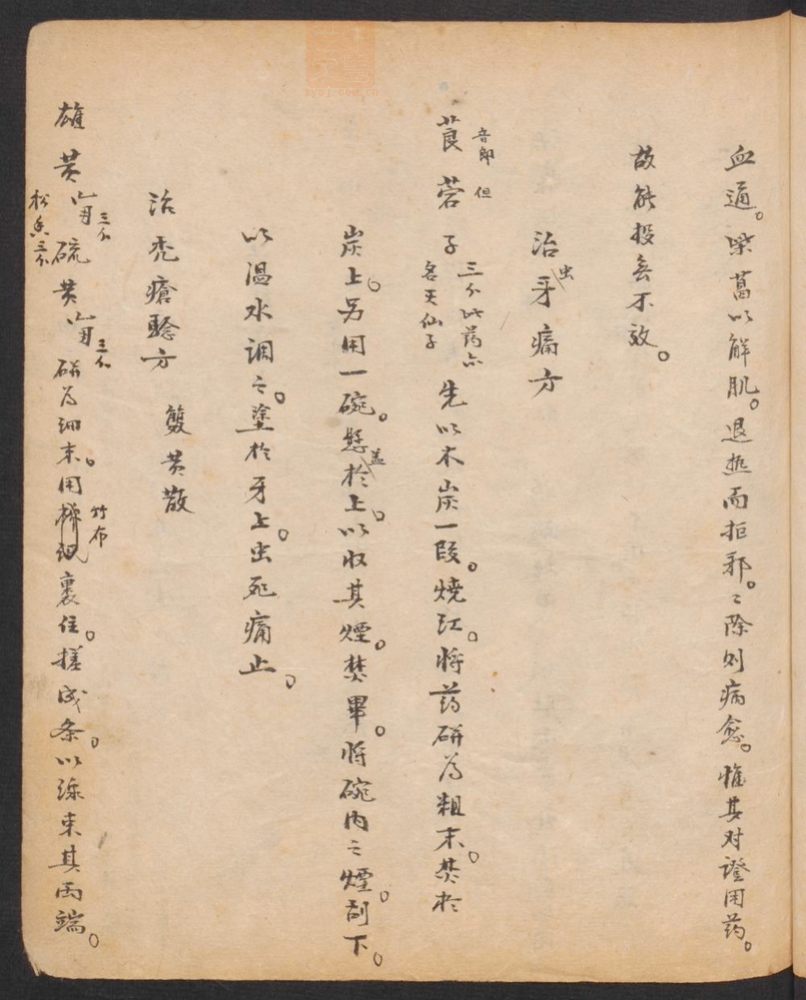 血通。柴葛以解肌。退热而拒邪。〻除则病愈。惟其对證用药。
故能投无不效。
治牙虫痛方
莨菪子 音郎 但 三个此药亦名天仙子 先以木炭一段。燒红。将药研为粗末。焚於
炭上。另用一碗。悬盖於上。以收其煙。焚畢。将碗内之煙。刮下。
以温水调之。塗於牙上。虫死痛止。
治秃瘡驗方 雙黄散
雄黄 三个 硫黄 三个 松香三个 研为细末。用竹布裹住。搓成条。以綵束其两端。